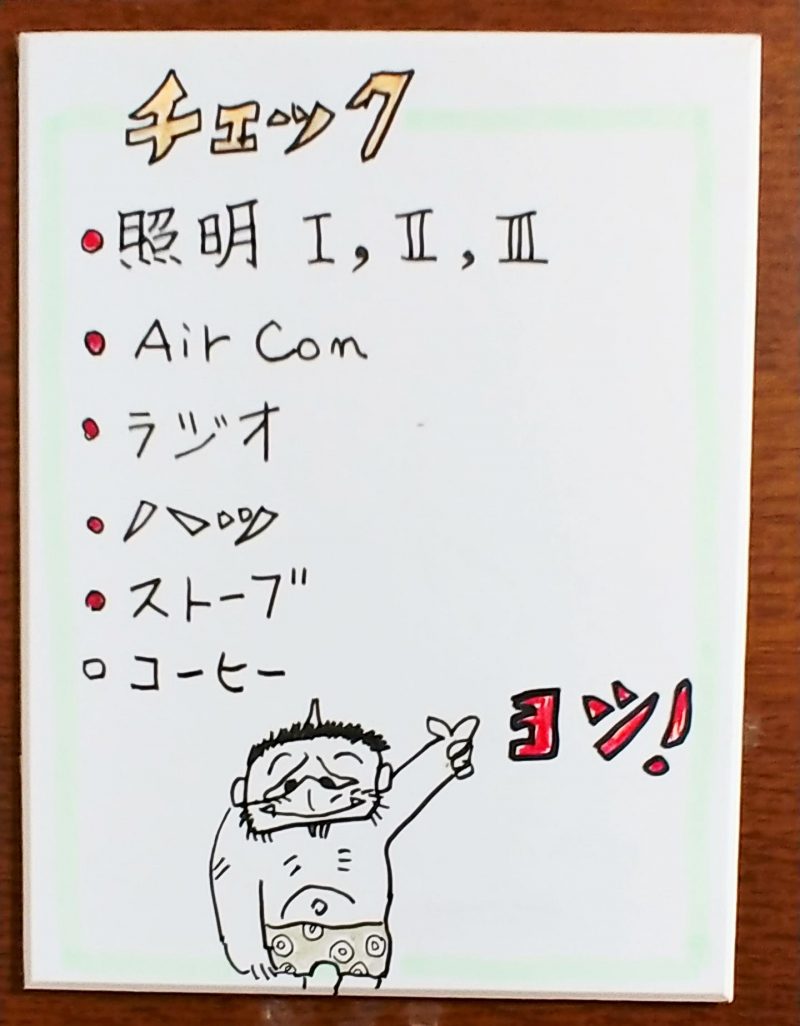 チェック
照明 Ⅰ, Ⅱ, Ⅲ
Air Con
ラジオ
ストーブ
コーヒー
ヨシ!